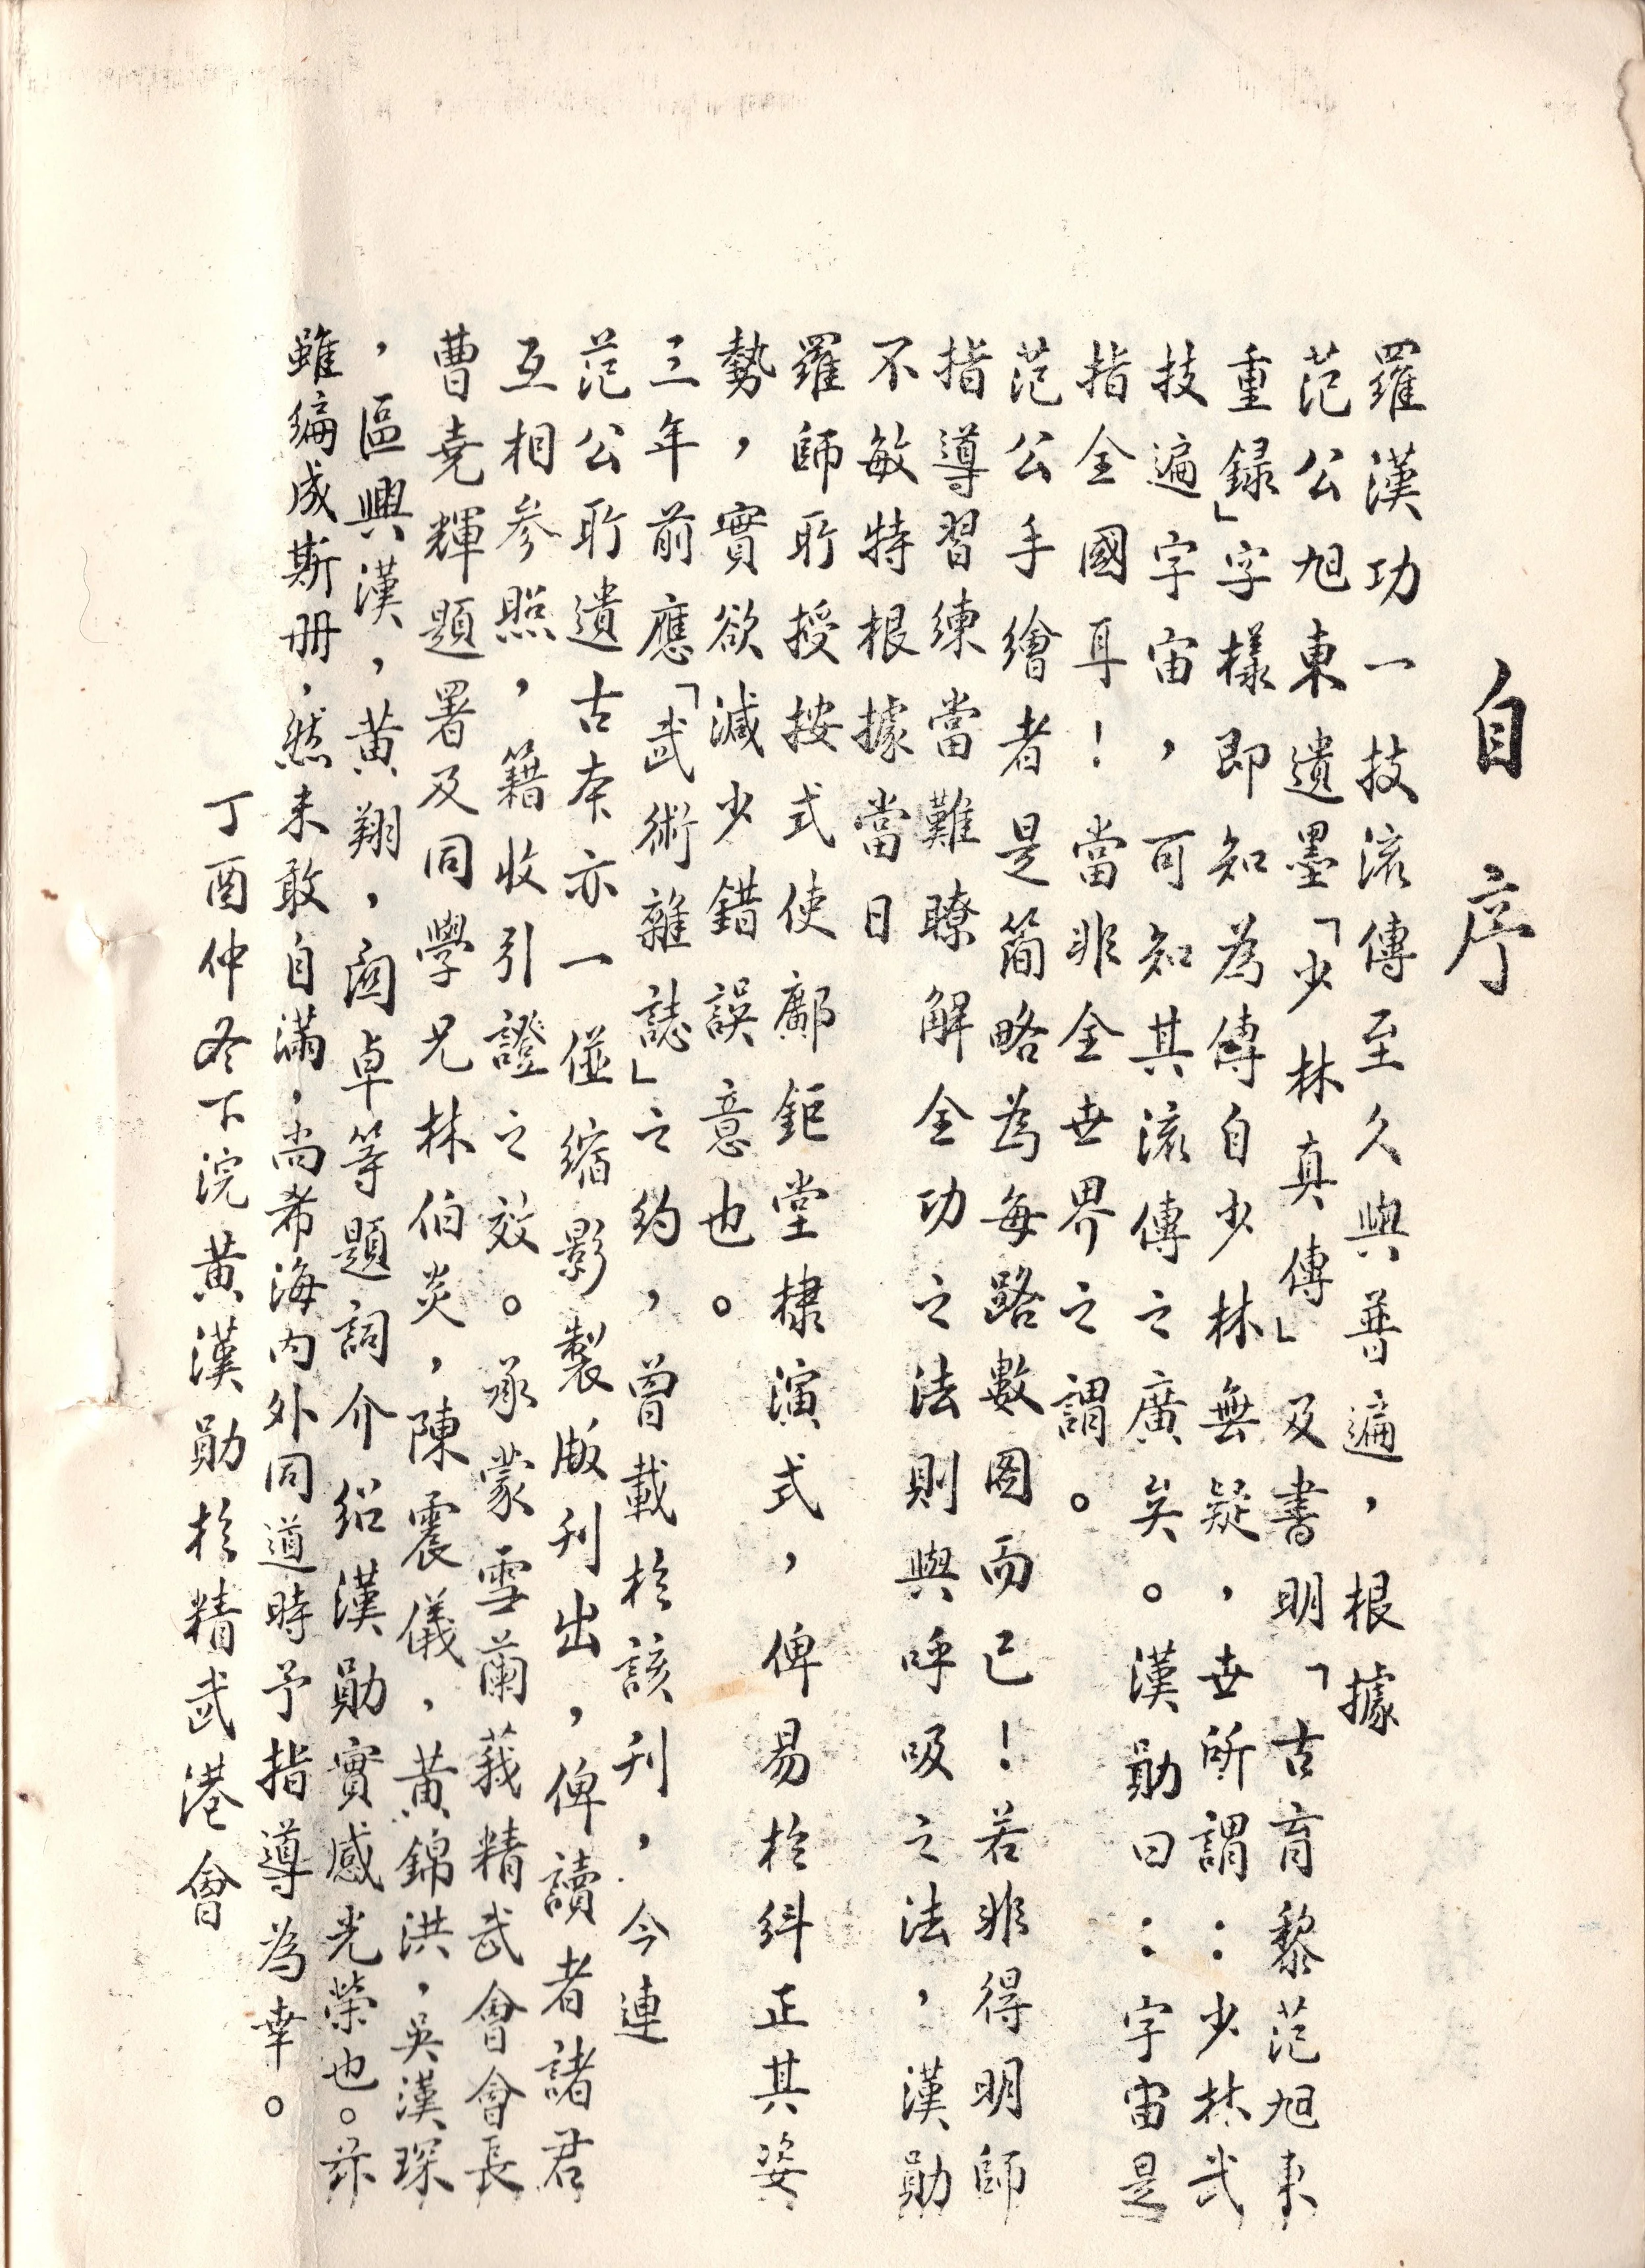 自序
羅漢功一技流傳至久與普遍，根據
范公旭東遺墨「少林真傳」及書明「古育黎范旭東
重録」字樣即知為傳自少林無疑，世所謂：少林武
技遍字宙，可知其流傳之廣矣。漢勛曰：字宙是
指全國耳！當非全世界之謂。
范公手繪者是简略為每路數图而已！若非得明師
指導習練當難瞭解全功之法則與呼吸之法，漢勛
不敏特根據當日
羅師所授按式使鄺鉅堂棣演式，俾易於糾正其姿
勢，實欲減少錯誤意也。
三年前應「武術雜誌」之約，曾載於該刊，今連
范公所遺古本亦一倂縮影製版刊出，俾讀者諸君
互相参照，籍收引證之效。承蒙雪蘭莪精武會會長
曹堯輝題署及同學兄林伯炎，陳震儀，黄錦洪，吳漢琛
，區興漢，黄翔，卓等題詞介紹漢勛實感光榮也。茲
雖编成斯册，然未敢自滿，尚希海内外同道時予指導為幸。
丁酉仲冬下浣黄漢勛於精武港會